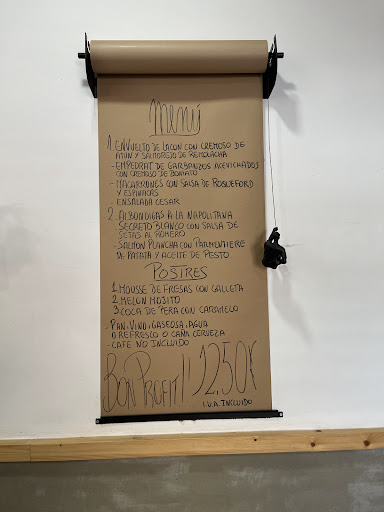 Menú
1. ENVUELTO DE LACON CON CREMOSO DE
ATUN Y SALMOREJO DE REMOLACHA
- EMPEDRAT DE GARBANZOS ACEVICHADOS
CON CREMOSO DE BONIATO
- MACARRONES CON SALSA DE ROQUEFORD
Y ESPINACAS
- ENSALADA CESAR
2. ALBONDIGAS A LA NAPOLITANA
SECRETO BLANCO CON SALSA DE
SETAS AL ROMERO
- SALMON PLANCHA CON PARMONTIERE
DE PATATA Y ACEITE DE PESTO
POSTRES
1. MOUSSE DE FRESAS CON GALLETA
2. MELON MOJITO
3. COCA DE PERA CON CARAMELO
- PAN, VINO, GASEOSA, AGUA
O REFRESCO O CAÑA CERVEZA
- CAFE NO INCLUIDO
BON PROFIT!! 12,50€
I.V.A. INCLUIDO